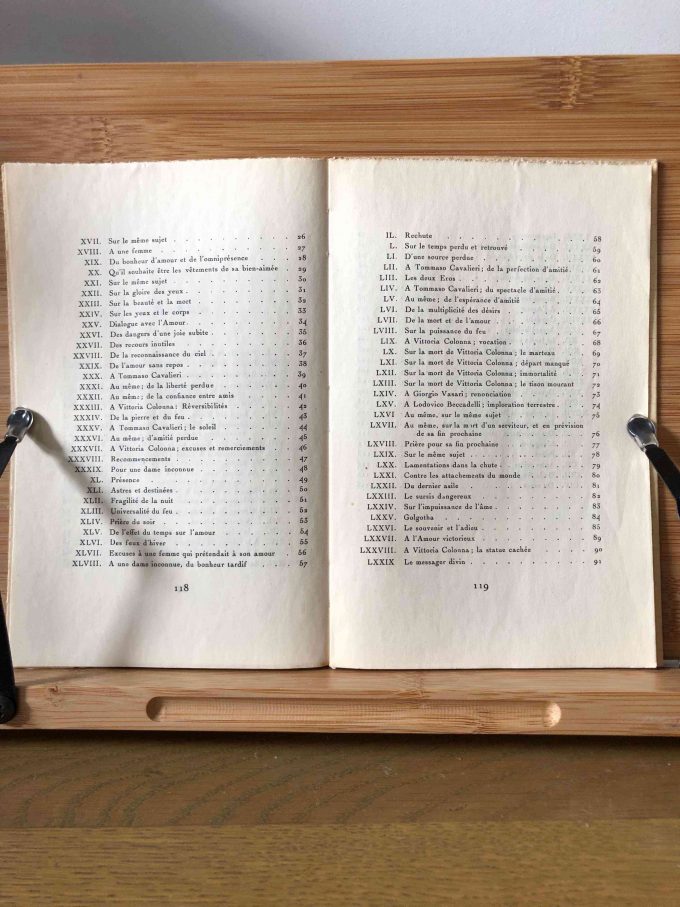 XVII. Sur le même sujet . . . . . . . . . . . 26
XVIII. A une femme . . . . . . . . . . . . 27
XIX. Du bonheur d'amour et de l'omniprésence . . . . 28
XX. Qu'il souhaite être les vêtements de sa bien-aimée . 29
XXI. Sur le même sujet . . . . . . . . . . . 30
XXII. Sur la gloire des yeux . . . . . . . . . . 31
XXIII. Sur la beauté et la mort . . . . . . . . . 39
XXIV. Sur les yeux et le corps . . . . . . . . . 33
XXV. Dialogue avec l'Amour . . . . . . . . . 34
XXVI. Des dangers d'une joie subite . . . . . . . 35
XXVII. Des recours inutiles . . . . . . . . . . 36
XXVIII. De la reconnaissance du ciel . . . . . . . . 37
XXIX. De l'amour sans repos . . . . . . . . . 38
XXX. A Tommaso Cavalieri . . . . . . . . . . 39
XXXI. Au même ; de la liberté perdue . . . . . . . 40
XXXII. Au même ; de la confiance entre amis . . . . . 41
XXXIII. A Vittoria Colonna : Réversibilités . . . . . . 42
XXXIV. De la pierre et du feu . . . . . . . . . . 43
XXXV. A Tommaso Cavalieri ; le soleil . . . . . . . 44
XXXVI. Au même ; d'amitié perdue . . . . . . . . 45
XXXVII. A Vittoria Colonna ; excuses et remerciements . . 46
XXXVIII. Recommencements . . . . . . . . . . . 47
XXXIX. Pour une dame inconnue . . . . . . . . . 48
XL. Présence . . . . . . . . . . . . . . 49
XLI. Astres et destinées . . . . . . . . . . . 50
XLII. Fragilité de la nuit . . . . . . . . . . . 51
XLIII. Universalité du feu . . . . . . . . . . . 52
XLIV. Prière du soir . . . . . . . . . . . . 53
XLV. De l'effet du temps sur l'amour . . . . . . . 54
XLVI. Des feux d'hiver . . . . . . . . . . . 55
XLVII. Excuses à une femme qui prétendait à son amour . 56
XLVIII. A une dame inconnue, du bonheur tardif . . . . 57
118
IL. Rechute . . . . . . . . . . . . . . 58
L. Sur le temps perdu et retrouvé . . . . . . . 59
LI. D'une source perdue . . . . . . . . . . 60
LII. A Tommaso Cavalieri ; de la perfection d'amitié . . 61
LIII. Les deux Eros . . . . . . . . . . . . 62
LIV. A Tommaso Cavalieri ; du spectacle d'amitié . . . 63
LV. Au même ; de l'espérance d'amitié . . . . . . 64
LVI. De la multiplicité des désirs . . . . . . . . 65
LVII. De la mort et de l'amour . . . . . . . . . 66
LVIII. Sur la puissance du feu . . . . . . . . . 67
LIX. A Vittoria Colonna ; vocation . . . . . . . 68
LX. Sur la mort de Vittoria Colonna ; le marteau . . . 69
LXI. Sur la mort de Vittoria Colonna ; départ manqué . 70
LXII. Sur la mort de Vittoria Colonna ; immortalité . . 71
LXIII. Sur la mort de Vittoria Colonna ; le tison mourant . 72
LXIV. A Giorgio Vasari ; renonciation . . . . . . . 73
LXV. A Lodovico Beccadelli ; imploration terrestre . . . 74
LXVI Au même, sur le même sujet . . . . . . . . 75
LXVII. Au même, sur la mort d'un serviteur, et en prévision
de sa fin prochaine . . . . . . . . . . 76
LXVIII. Prière pour sa fin prochaine . . . . . . . . 77
LXIX. Sur le même sujet . . . . . . . . . . . 78
LXX. Lamentations dans la chute . . . . . . . . 79
LXXI. Contre les attachements du monde . . . . . . 80
LXXII. Du dernier asile . . . . . . . . . . . 81
LXXIII. Le sursis dangereux . . . . . . . . . . 82
LXXIV. Sur l'impuissance de l'âme . . . . . . . . 83
LXXV. Golgotha . . . . . . . . . . . . . . 84
LXXVI. Le souvenir et l'adieu . . . . . . . . . . 85
LXXVII. A l'Amour victorieux . . . . . . . . . . 89
LXXVIII. A Vittoria Colonna ; la statue cachée . . . . . 90
LXXIX Le messager divin . . . . . . . . . . . 91
119